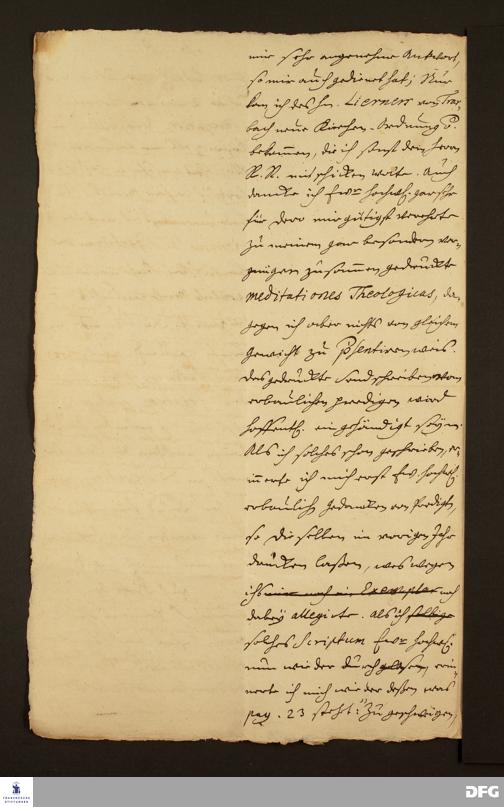 mir sehr angenehme Antwort,
so mir auch gedienet hat; Nur
kan ich des Hn. Lierners von Trar-
bach neue Kirchen-Ordnung
bekommen, die ich sonst dem Herrn
R. R. mit schicken wolte. Auch
dancke ich Ewr Hochw. gar sehr
für dero mir gütigst verehrte
zu meinem gar besondern ver-
gnügen zusammen gedruckte
meditationes Theologicas, da
gegen ich aber nichts von gleichem
gewicht zu psentiren weis.
Das gedruckte Sendschreiben vom
erbaulichen predigen wird
hoffentl. eingehändigt seyn.
Als ich solches schon geschrieben, er-
innerte ich mich erst Ew. Hochw.
erbaulich gedancken von Predigten,
so dieselben im vorigen Jahr
drucken laßen, weswegen
ichs nur noch ein Exemplar noch
dabey allegirte. Als ich selbige
solches Scriptum Ewr Hochw.
nun wieder durchgelesen, erin-
nerte ich mich wieder deßen was
pag. 23 steht: Zu geschweigen,
FRANCKESCHE
STIFTUNGEN
DFG